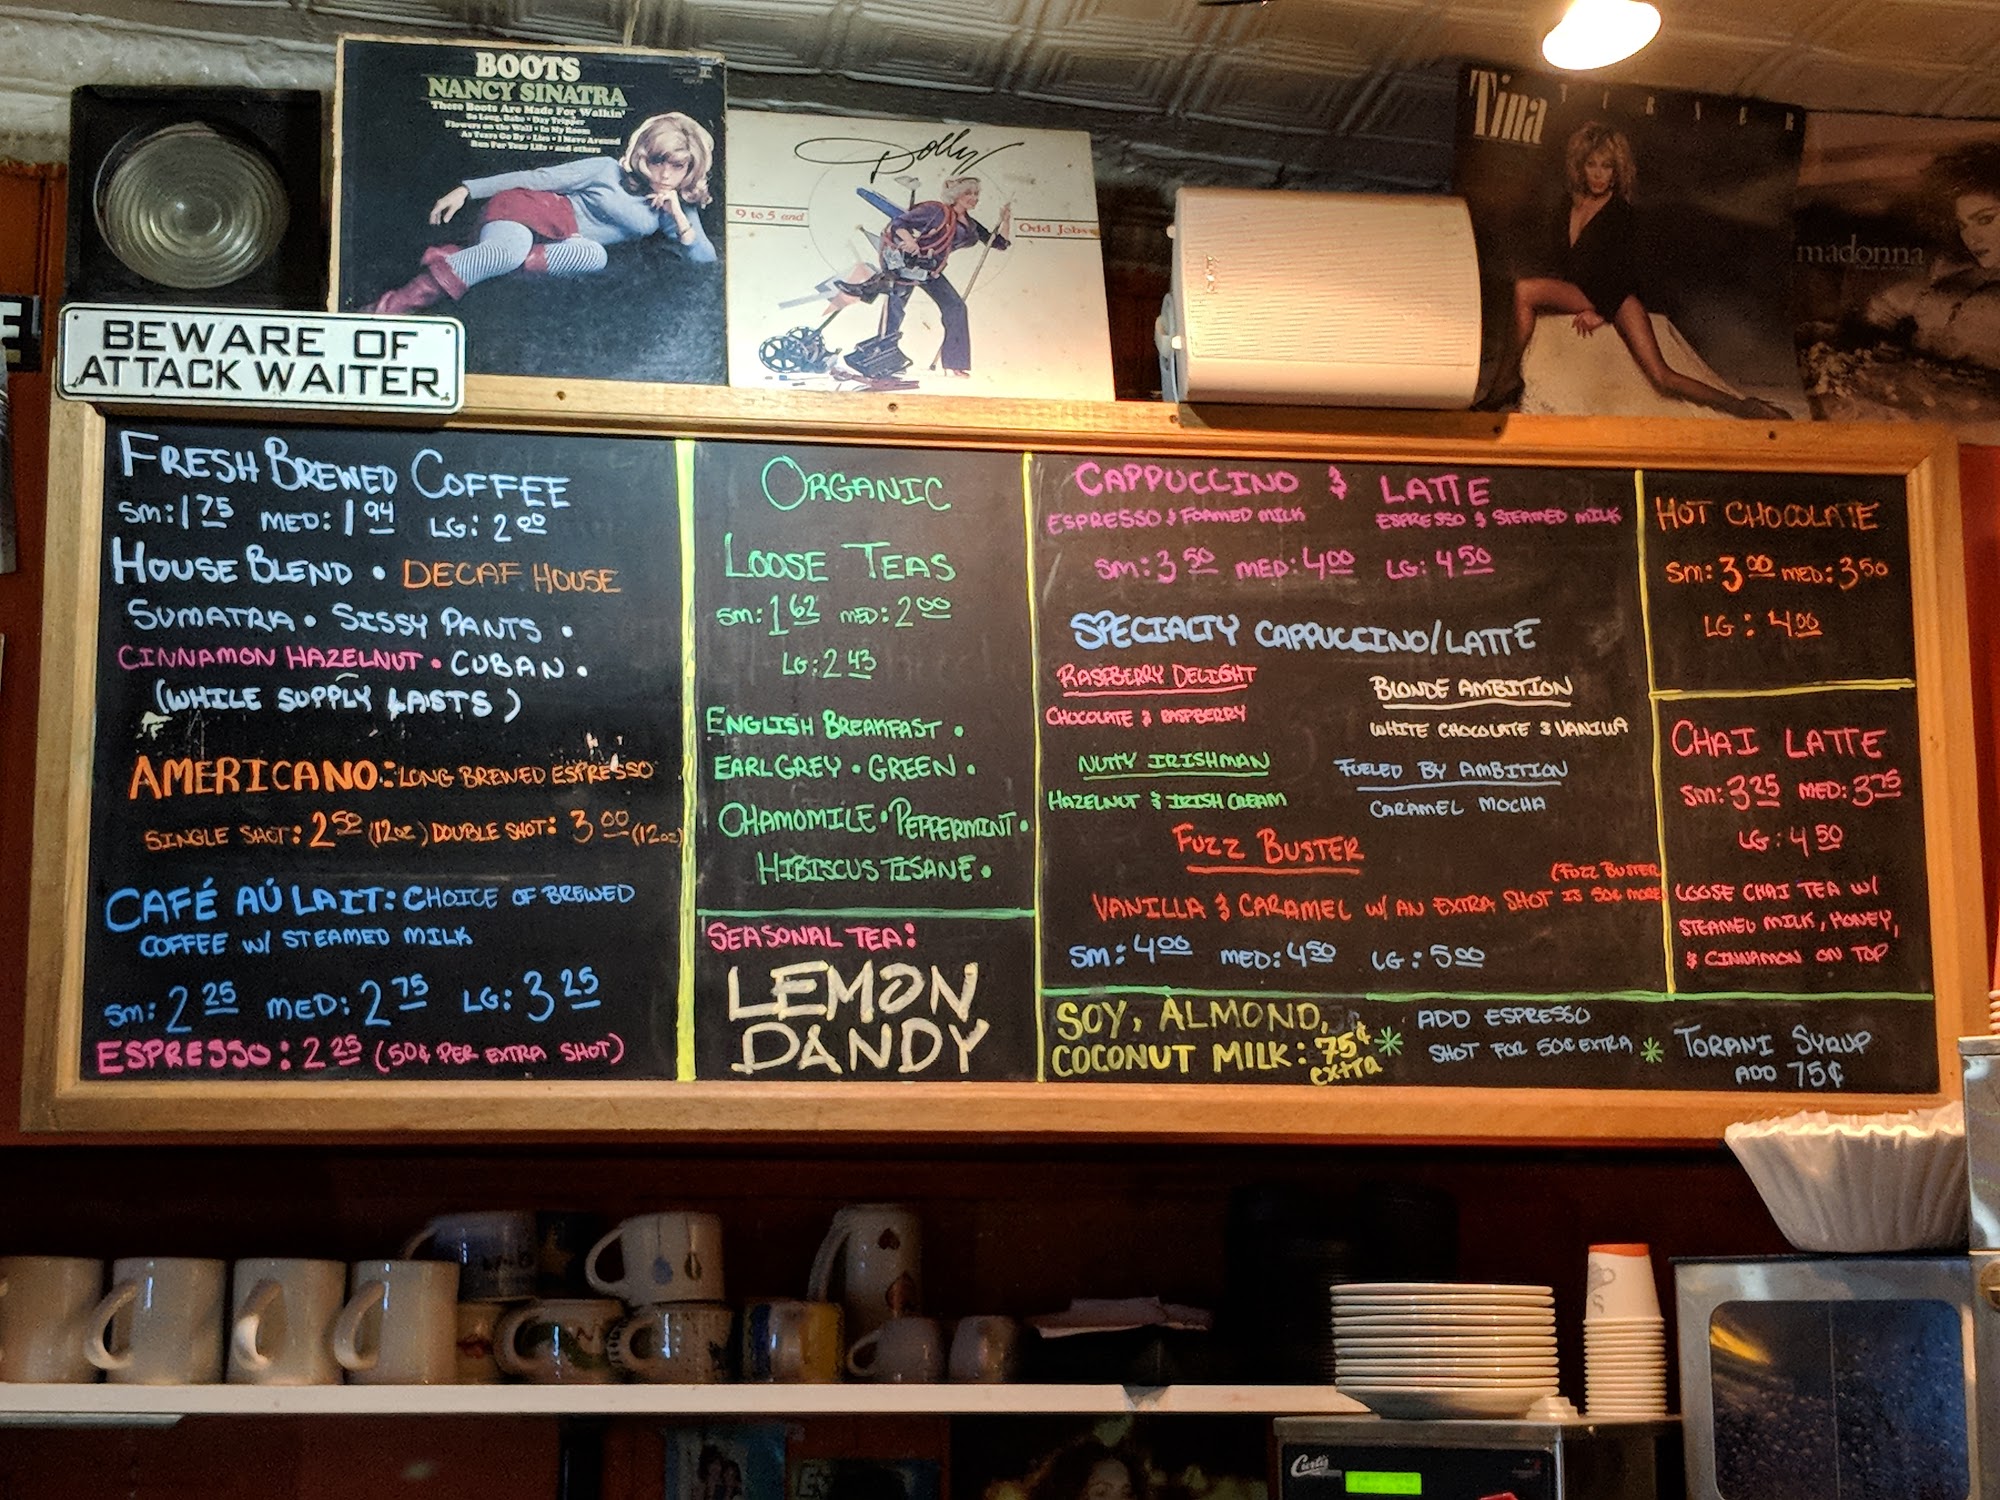 BOOTS
NANCY SINATRA
These Boots Are Made For Walkin'
So Long, Babe • Day Tripper
Flowers on the Wall • In My Room
As Tears Go By • Lies • I Move Around
Run For Your Life • and others
Dolly
9 to 5 and Odd Jobs
Tina TURNER
madonna
BEWARE OF
ATTACK WAITER
FRESH BREWED COFFEE
SM: 1 75 MED: 1 94 LG: 2 00
HOUSE BLEND • DECAF HOUSE
SUMATRA • SISSY PANTS •
CINNAMON HAZELNUT • CUBAN •
(WHILE SUPPLY LASTS)
AMERICANO: LONG BREWED ESPRESSO
SINGLE SHOT: 2 50 (12oz) DOUBLE SHOT: 3 00 (12oz)
CAFÉ AÚ LAIT: CHOICE OF BREWED
COFFEE W/ STEAMED MILK
SM: 2 25 MED: 2 75 LG: 3 25
ESPRESSO: 2 25 (50¢ PER EXTRA SHOT)
ORGANIC
LOOSE TEAS
SM: 1 62 MED: 2 00
LG: 2 43
ENGLISH BREAKFAST •
EARL GREY • GREEN •
CHAMOMILE • PEPPERMINT •
HIBISCUS TISANE •
SEASONAL TEA:
LEMON
DANDY
CAPPUCCINO & LATTE
ESPRESSO & FOAMED MILK ESPRESSO & STEAMED MILK
SM: 3 50 MED: 4 00 LG: 4 50
SPECIALTY CAPPUCCINO/LATTE
RASPBERRY DELIGHT
CHOCOLATE & RASPBERRY
BLONDE AMBITION
WHITE CHOCOLATE & VANILLA
NUTTY IRISHMAN
HAZELNUT & IRISH CREAM
FUELED BY AMBITION
CARAMEL MOCHA
FUZZ BUSTER
VANILLA & CARAMEL W/ AN EXTRA SHOT
(FUZZ BUSTER
IS 50¢ MORE)
SM: 4 00 MED: 4 50 LG: 5 00
HOT CHOCOLATE
SM: 3 00 MED: 3 50
LG: 4 00
CHAI LATTE
SM: 3 25 MED: 3 75
LG: 4 50
LOOSE CHAI TEA W/
STEAMED MILK, HONEY,
& CINNAMON ON TOP
SOY, ALMOND,
COCONUT MILK: 75¢
extra
* ADD ESPRESSO
SHOT FOR 50¢ EXTRA
* TORANI SYRUP
ADD 75¢
Curtis